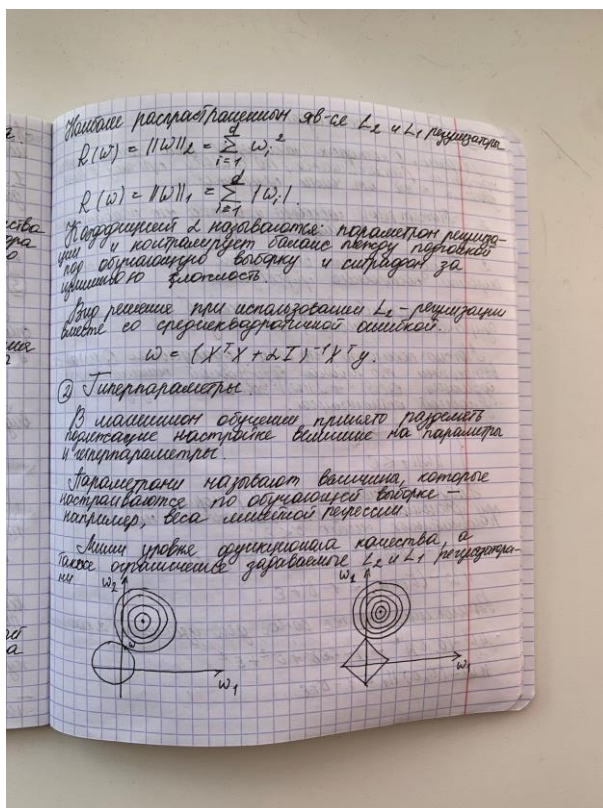 Наиболее распространенным яв-ся L₂ и L₁ регуляризаторы
R(w) = ||w||₂ = Σ_{i=1}^{d} wᵢ²
R(w) = ||w||₁ = Σ_{i=1}^{d} |wᵢ|.
α называются: параметром
и контролирует баланс между подгонкой
под обучающую выборку и штрафом за
излишнюю сложность.
Вид решения при использовании L₂-регуляризации
вместе со среднеквадратичной ошибкой.
w = (XᵀX + αI)⁻¹Xᵀy.
② Гиперпараметры.
В машинном обучении принято разделять
подлежащие настройке величине на параметры
и гиперпараметры.
Параметрами называют величина, которые
настраиваются по обучающей выборке –
например, веса линейной регрессии.
Линии уровня функционала качества, а
также ограничение задаваемые L₂ и L₁ регуляризатора-
ми
w₂
w
w₁
w₂
w₁